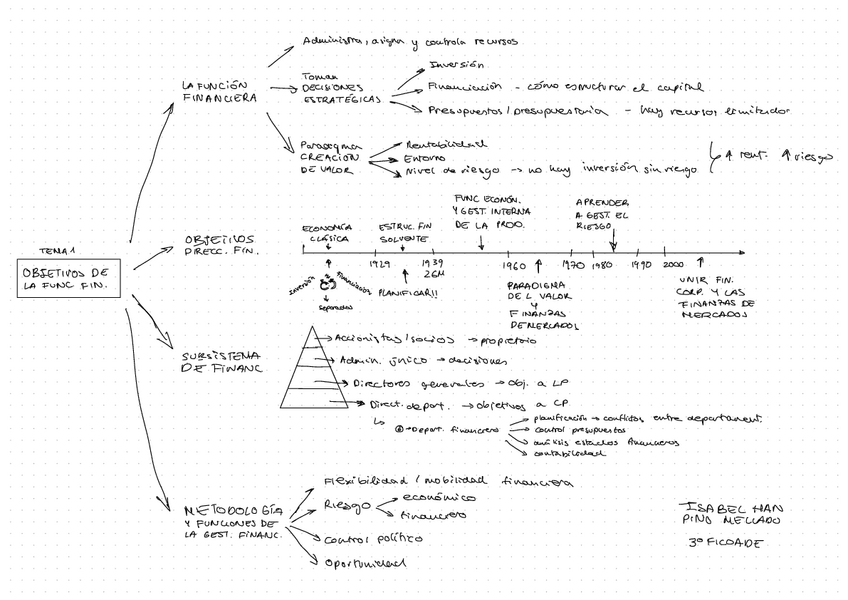 TEMA 1
OBJETIVOS DE
LA FUNC FIN.
LA FUNCIÓN
FINANCIERA
Administra, asigna y controla recursos
Toman
DECISIONES
ESTRATÉGICAS
Inversión
Financiación - cómo estructurar el capital
Presupuestos/presupuestaria - hay recursos limitados
Paradigma
CREACIÓN
DE VALOR
Rentabilidad
Entorno
Nivel de riesgo → no hay inversión sin riesgo
↑ rent. ↑ riesgo
OBJETIVOS
DIRECC. FIN.
ECONOMÍA
CLÁSICA
Inversión
Financiación
separadas
ESTRUC. FIN
SOLVENTE
1929
PLANIFICAR!!
1939
2GM
FUNC ECONÓM.
Y GEST. INTERNA
DE LA PROD.
1960
PARADIGMA
DEL VALOR
Y
FINANZAS
DE MERCADOS
1970
1980
APRENDER
A GEST. EL
RIESGO
1990
2000
UNIR FIN.
CORP. Y LAS
FINANZAS DE
MERCADOS
SUBSISTEMA
DE FINANC
Accionistas/socios → propietario
Admin. único → decisiones
Directores generales → Obj. a LP
Direct. depart. → Objetivos a CP
→ Depart. financiero
planificación → conflictos entre department.
control presupuestos
análisis estados financieros
contabilidad
METODOLOGÍA
Y FUNCIONES DE
LA GEST. FINANC.
Flexibilidad / mobilidad financiera
Riesgo
económico
financiero
Control político
Oportunidad
ISABEL HAN
PINO MELLADO
3º FICOADE